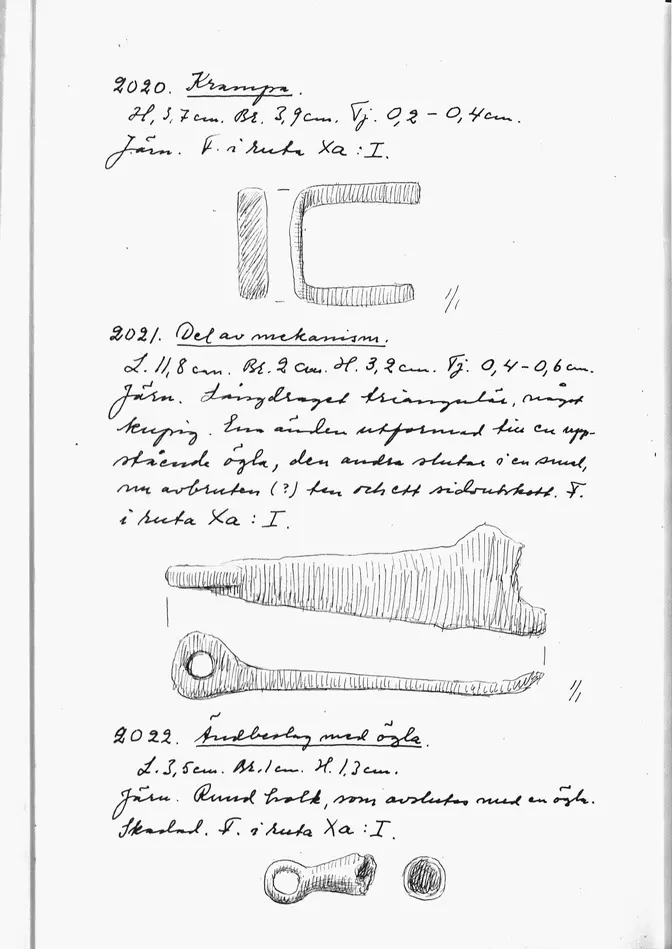 2020. Krampa.
H. 3,7 cm. Br. 3,9 cm. Tj. 0,2 – 0,4 cm.
Järn. F. i ruta Xa : I.
1/1
2021. Del av mekanism.
L. 11,8 cm. Br. 2 cm. H. 3,2 cm. Tj. 0,4 – 0,6 cm.
Järn. Långdraget triangulär, något
kupig. Ena änden utformad till en upp-
stående ögla, den andra slutar i en smal,
nu avbruten (?) ten och ett sidoutskott. F.
i ruta Xa : I.
1/1
2022. Ändbeslag med ögla.
L. 3,5 cm. Br. 1 cm. H. 1,3 cm.
Järn. Rund holk, som avslutas med en ögla.
Skadad. F. i ruta Xa : I.